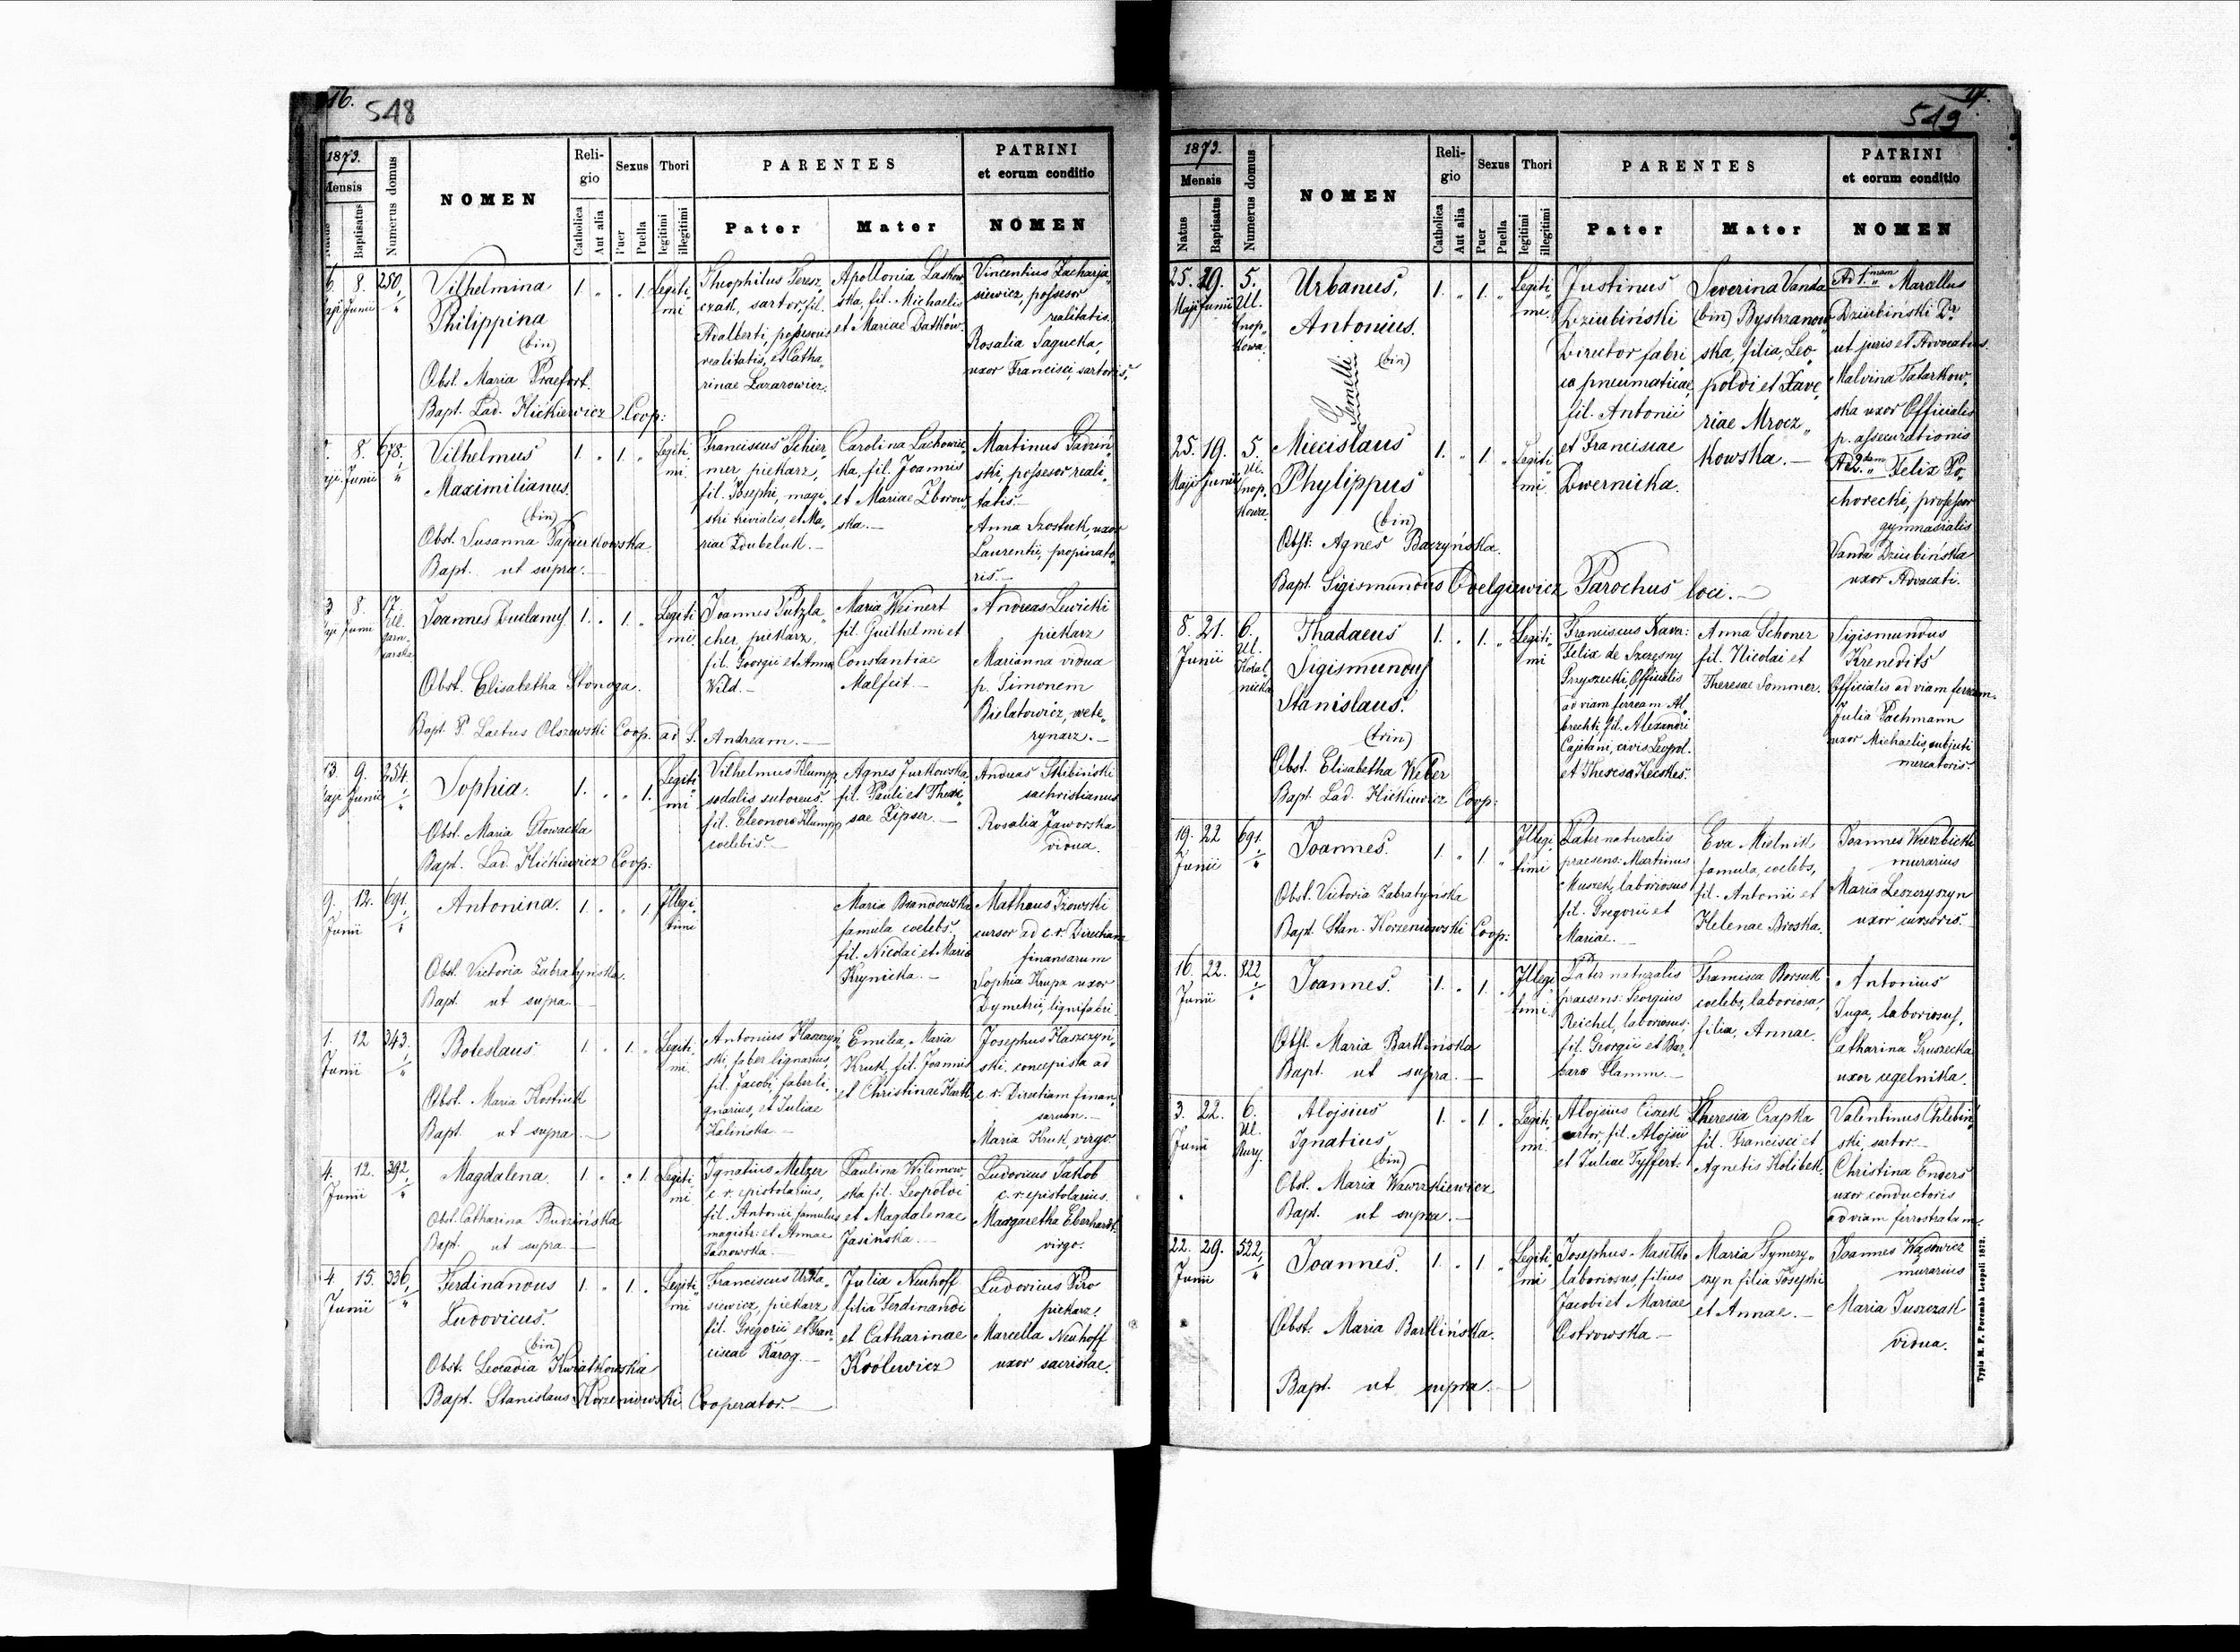 16.
548
1873.
Mensis
Baptisatus
Numerus domus
NOMEN
Reli-
gio
Catholica
Aut alia
Sexus
Puer
Puella
Thori
legitimi
illegitimi
PARENTES
Pater
Mater
PATRINI
et eorum conditio
NOMEN
6. 8. 250.
Maji Junii
Vilhelmina
Philippina
(bin)
Obst. Maria Praefort.
Bapt. Lad. Hićkiewicz Coop:
1. „ „ 1. Legiti„
mi
Theophilus Teresz„
czak, sartor, fil.
Adalberti, possessoris
realitatis, et Catha„
rinae Lazarowicz.
Apollonia Laskow„
ska, fil. Michaelis
et Mariae Datków.
Vincentius Zacharja„
siewicz, possesor
realitatis.
Rosalia Sagucka,
uxor Francisci, sartoris.
8. 678.
Junii
Vilhelmus
Maximilianus.
(bin)
Obst. Susanna Papierkowska
Bapt. ut supra.
1. „ 1. „ Legiti„
mi
Franciscus Schier„
mer piekarz,
fil. Josephi, magi„
stri trivialis, et Ma„
riae Doubeluk.
Carolina Lachowic„
ka, fil. Joannis
et Mariae Zborow„
ska.
Martinus Gadziń„
ski, possesor reali„
tatis.
Anna Szostek, uxor
Laurentii, propinato„
ris.
3 8. 17
Junii Ul.
Garn„
carska
Joannes Duclanus
Obst. Elisabetha Stonoga.
Bapt. P. Laetus Olszewski Coop. ad S. Andream.
1. „ 1. „ Legiti„
mi
Joannes Putzla„
cher, piekarz,
fil. Georgii et Anna
Wild.
Maria Weinert
fil. Guilhelmi et
Constantiae
Malfeit.
Andreas Lewicki
piekarz
Marianna vidua
p. Simonem
Bielatowicz, wete„
rynarz.
13. 9. 254.
Maji Junii
Sophia.
Obst. Maria Głowacka
Bapt. Lad. Hićkiewicz Coop:
1. „ „ 1. Legiti„
mi
Vilhelmus Klumpp
sodalis sutoreus.
fil. Eleonora Klumpp
coelebis.
Agnes Jurkowska,
fil. Pauli et There„
sae Zipser.
Andreas Skibiński
sachristianus
Rosalia Jaworska
vidua.
9. 12. 691.
Junii
Antonina.
Obst. Victoria Zabratyńska.
Bapt. ut supra.
1. „ „ 1. Illegi„
timi
Maria Brandowska
famula coelebs,
fil. Nicolai et Maria
Krynicka.
Matheus Izowski
cursor ad c. r. Directiam
finansarum
Sophia Krupa uxor
Dymetrii, lignifabri
1. 12 343.
Junii
Boleslaus
Obst. Maria Kostiuk
Bapt. ut supra
1. „ 1. „ Legiti„
mi
Antonius Klaszczyń„
ski, faber lignarius,
fil. Jacobi, faber li„
gnarius, et Juliae
Kalińska
Emilia, Maria
Kruk, fil. Joannis
et Christinae Hartl
Josephus Klaszczyń„
ski, concepista ad
c. r. Directiam finan„
sarum.
Maria Kruk, virgo
4. 12. 392.
Junii
Magdalena.
Obst. Catharina Budzińska
Bapt. ut supra
1. „ „ 1. Legiti„
mi
Ignatius Melzer
c. r. epistolarius,
fil. Antonii famulus
magistr: et Annae
Paszowska.
Paulina Wilimow„
ska fil. Leopoldi
et Magdalenae
Jasińska.
Ludovicus Jakob
c. r. epistolarius.
Margaretha Eberhardt
virgo.
4. 15. 336.
Junii
Ferdinandus
Ludovicus.
(bin)
Obst. Leocadia Kwiatkowska
Bapt. Stanislaus Korzeniowski Cooperator.
1. „ 1. „ Legiti„
mi
Franciscus Urba„
siewicz, piekarz
fil. Gregorii et Fran„
ciscae Rarog.
Julia Neuhoff
filia Ferdinandi
et Catharinae
Królewicz
Ludovicus Piro
piekarz,
Marcella Neuhoff
uxor sacristae.
549
1873.
Mensis
Natus
Baptisatus
Numerus domus
NOMEN
Reli-
gio
Catholica
Aut alia
Sexus
Puer
Puella
Thori
legitimi
illegitimi
PARENTES
Pater
Mater
PATRINI
et eorum conditio
NOMEN
25. 19. 5.
Maji Junii Ul.
Snop„
kowa
Urbanus,
Antonius.
(bin)
Gemelli
1. „ 1. „ Legiti„
mi
Justinus
Dziubiński
Director fabri„
ca pneumaticae,
fil. Antonii
et Franciscae
Zwernicka.
Severina Vanda
(bin) Bystrzanow„
ska, filia, Leo„
poldi et Xave„
riae Mrocz„
kowska.
Ad 1mam Marcellus
Dziubiński Dr.
ut juris et Advocatus.
Malvina Tatarkow„
ska uxor Officialis
p. assecurationis
Ad 2dam Felix Po„
chorecki, professor
gymnasialis
Vanda Dziubińska
uxor Advocati.
25. 19. 5.
Maji Junii Ul.
Snop„
kowa
Miecislaus
Phylippus
(bin)
Obst: Agnes Baczyńska.
Bapt. Sigismundus Odelgiewicz Parochus loci.
1. „ 1. „ Legiti„
mi
8. 21. 6.
Junii Ul.
Kotal„
nicka
Thadaeus
Sigismundus
Stanislaus.
(trin)
Obst. Elisabetha Weber
Bapt. Lad. Hićkiewicz Coop:
1. „ 1. „ Legiti„
mi
Franciscus Xaver:
Felix de Szczęsny
Przyszecki Officialis
ad viam ferream Al„
brechti, fil. Alexandri
Cajetani, civis Leopol.
et Theresa Kecskes.
Anna Schoner
fil. Nicolai et
Theresae Sommer.
Sigismundus
Krenedits
Officialis ad viam ferream.
Julia Pachmann
uxor Michaelis, subjecti
mercatoris.
19. 22 691.
Junii
Joannes.
Obst. Victoria Zabratyńska
Bapt. Stan. Korzeniowski Coop:
1. „ 1. „ Illegi„
timi
Pater naturalis
praesens: Martinus
Muszek, laboriosus
fil. Gregorii et
Mariae.
Eva Mielnik
famula, coelebs,
fil. Antonii et
Helenae Broska.
Joannes Wierzbicki
murarius
Maria Leszczyszyn
uxor cursoris.
16. 22. 822
Junii
Joannes.
Obst. Maria Barthińska
Bapt. ut supra.
1. „ 1. „ Illegi„
timi
Pater naturalis
praesens: Georgius
Reichel, laboriosus,
fil. Georgii et Bar„
bara Flamm.
Francisca Borsuk
coelebs, laboriosa,
filia, Annae.
Antonius
Juga, laboriosus,
Catharina Gruszecka
uxor cegelnika.
3. 22. 6.
Junii Ul.
Rury.
Alojsius
Ignatius,
(bin)
Obst. Maria Wawrzkiewicz
Bapt. ut supra.
1. „ 1. „ Legiti„
mi.
Alojsius Ciszek
sartor, fil. Alojsii
et Juliae Tyffert.
Theresia Czapka
fil. Francisci et
Agnetis Kolibek.
Valentinus Chlebiń„
ski, sartor.
Christina Enders
uxor conductoris
ad viam ferrostratam.
22. 29. 522.
Junii
Joannes.
Obst. Maria Barthińska.
Bapt. ut supra.
1. „ 1. „ Legiti„
mi
Josephus Masetko
laboriosus, filius
Jacobi et Mariae
Ostrowska
Maria Tymczy„
szyn filia Josephi
et Annae.
Joannes Wąsowicz
murarius
Maria Tuszczak
vidua.
Typis M. F. Poremba Leopoli 1872.